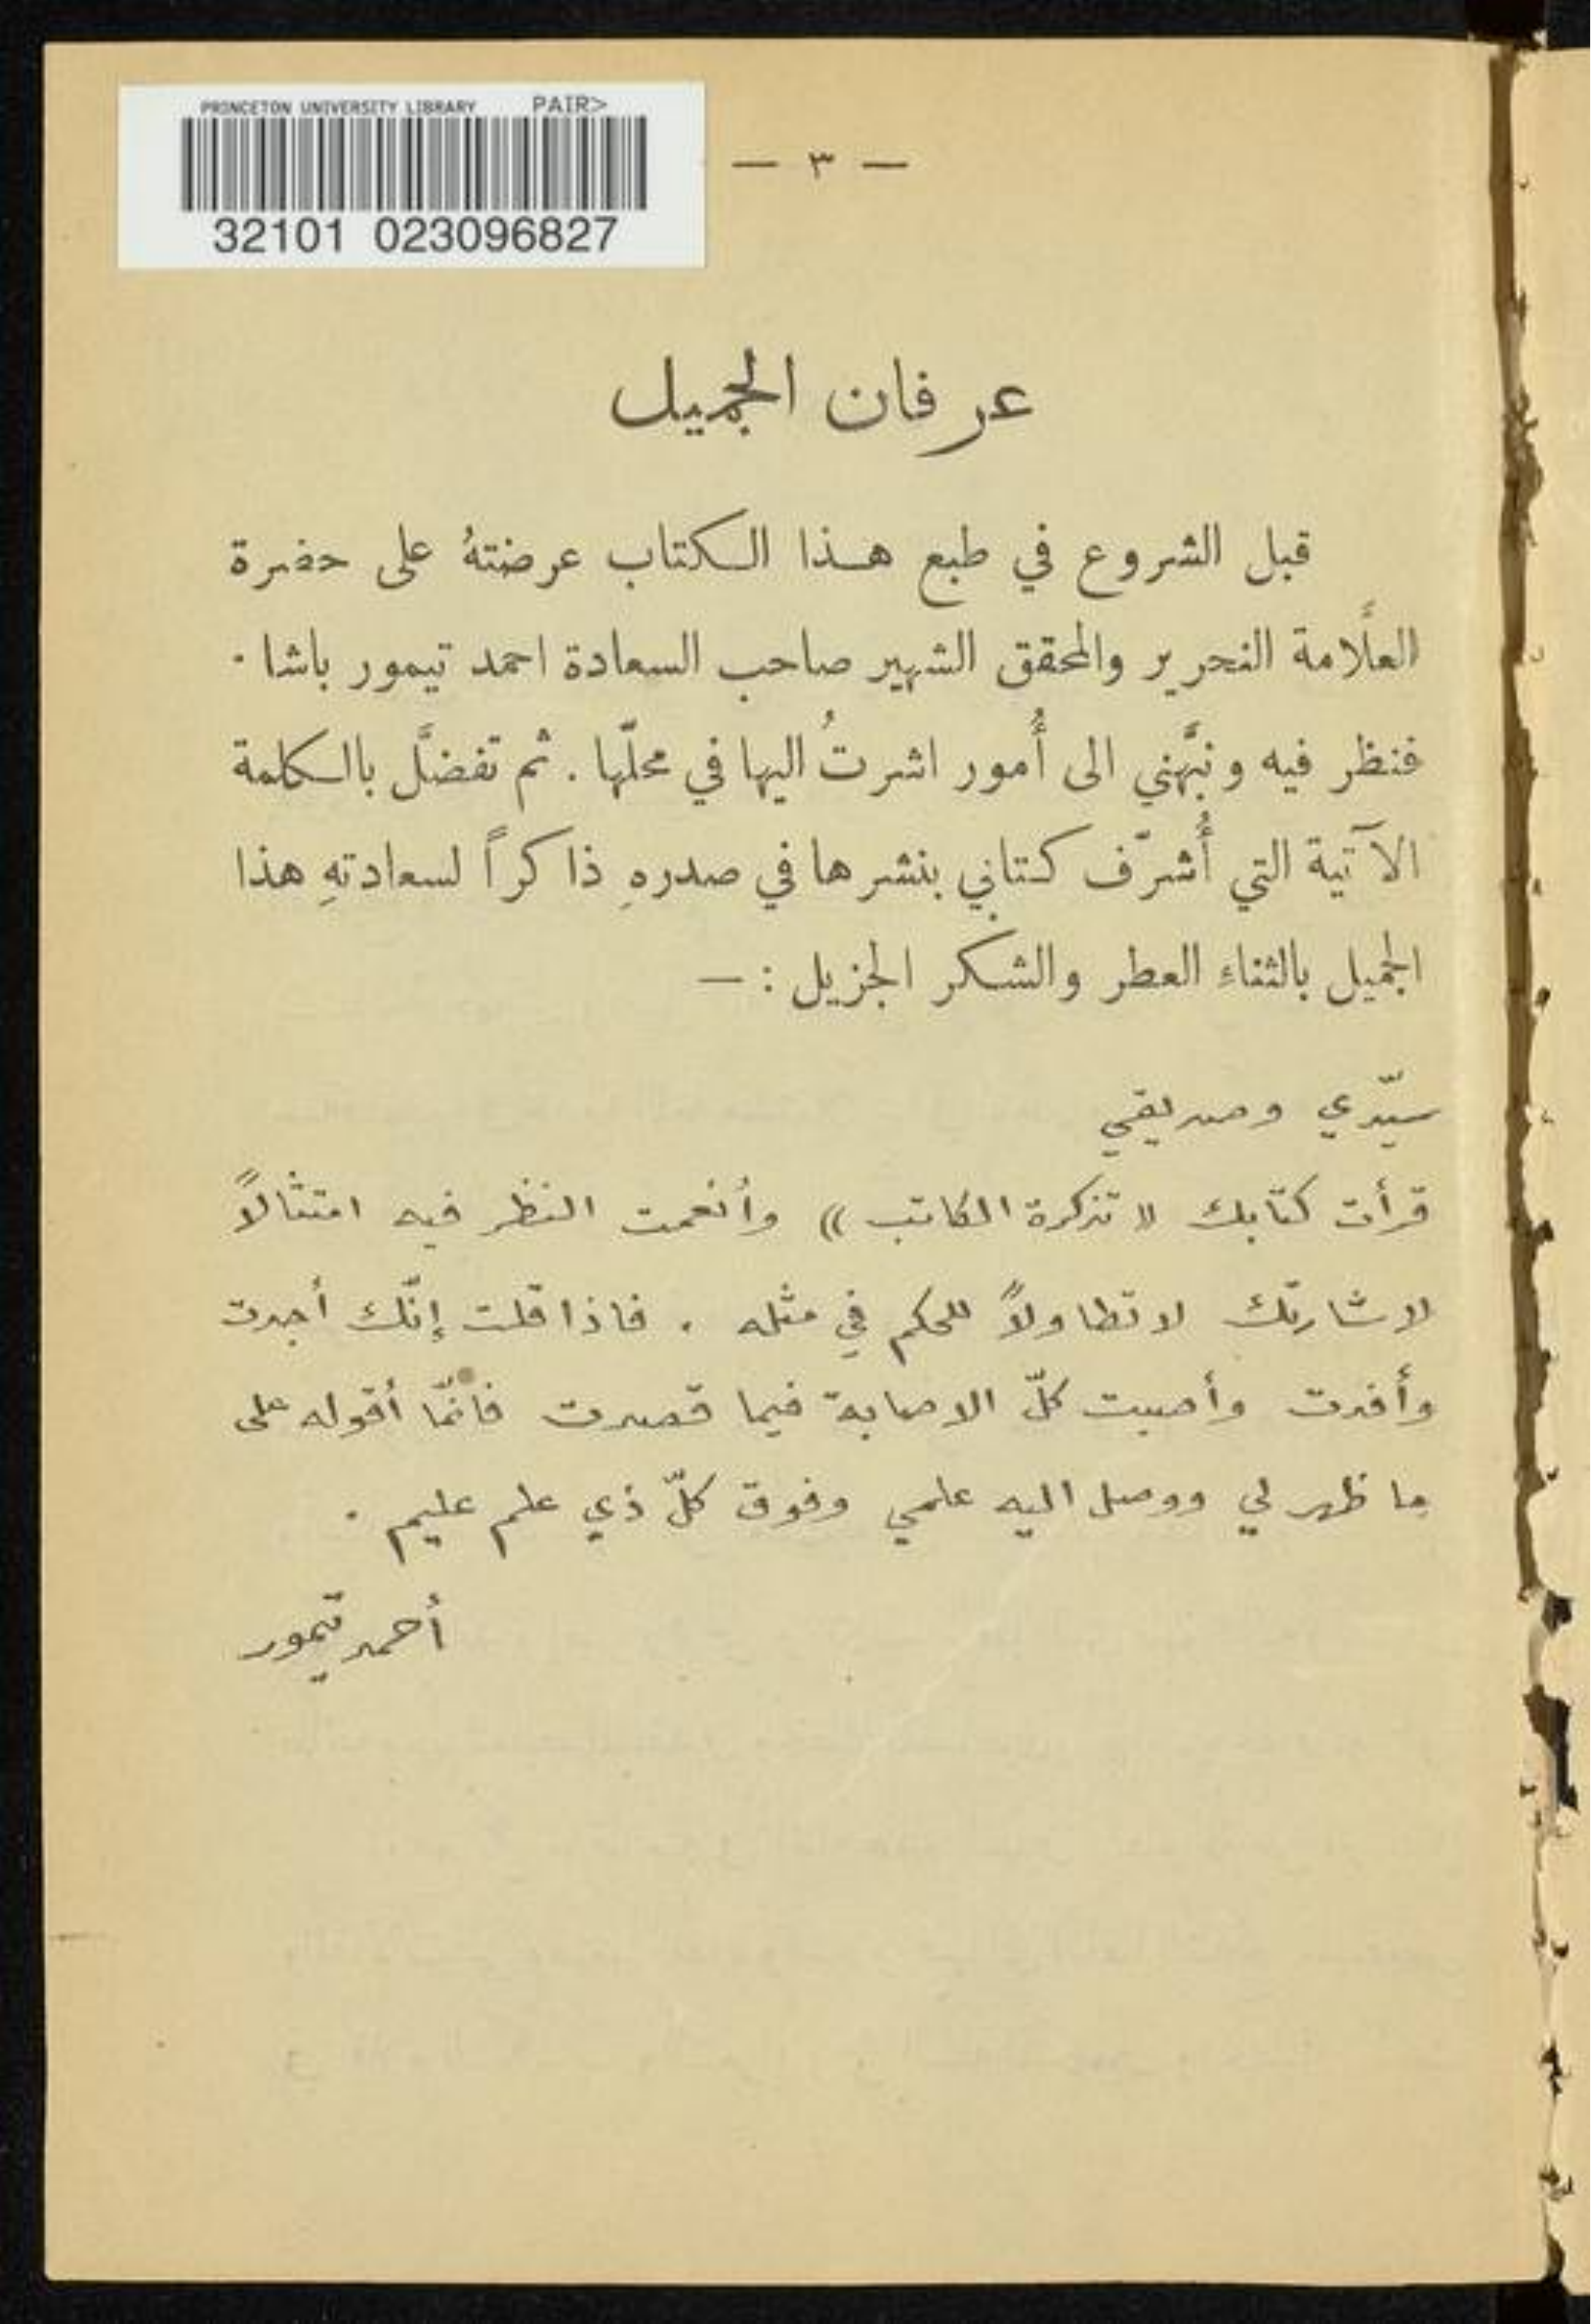 PRINCETON UNIVERSITY LIBRARY PAIR>
32101 023096827
— ٣ —
عرفان الجميل
قبل الشروع في طبع هذا الكتاب عرضتهُ على حضرة
العلَّامة النحرير والمحقق الشهير صاحب السعادة احمد تيمور باشا .
فنظر فيه ونبَّهني الى أُمور اشرتُ اليها في محلّها . ثم تفضَّل بالكلمة
الآتية التي أُشرّف كتابي بنشرها في صدرهِ ذاكراً لسعادتهِ هذا
الجميل بالثناء العطر والشكر الجزيل : —
سيّدي وصديقي
قرأت كتابك « تذكرة الكاتب » وأنعمت النظر فيه امتثالاً
لاشارتك لا تطاولاً للحكم في مثله . فاذا قلت إنّك أجدت
وأفدت وأصبت كلّ الاصابة فيما قصدت فانّما أقوله على
ما ظهر لي ووصل اليه علمي وفوق كلّ ذي علم عليم .
أحمد تيمور